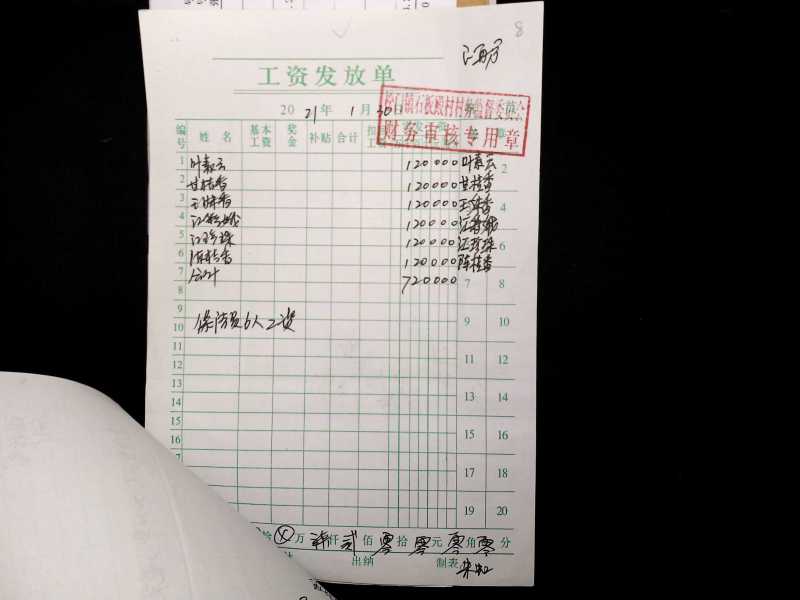 8
工资发放单
2021年1月30日
财务审核专用章
编号 姓名 基本工资 奖金 补贴 合计
1 叶 120000 叶 2
2 甘桂香 120000 甘桂香
3 王 120000 王 4
4 江 120000 江
5 江珍珠 120000 江珍珠 6
6 陈桂香 120000 陈桂香
7 合计 720000 7 8
8
9 9 10
10 保洁员6人工资
11 11 12
12
13 13 14
14
15 15 16
16
17 18
19 20
万柒仟贰佰零拾零元零角零分
出纳 制表